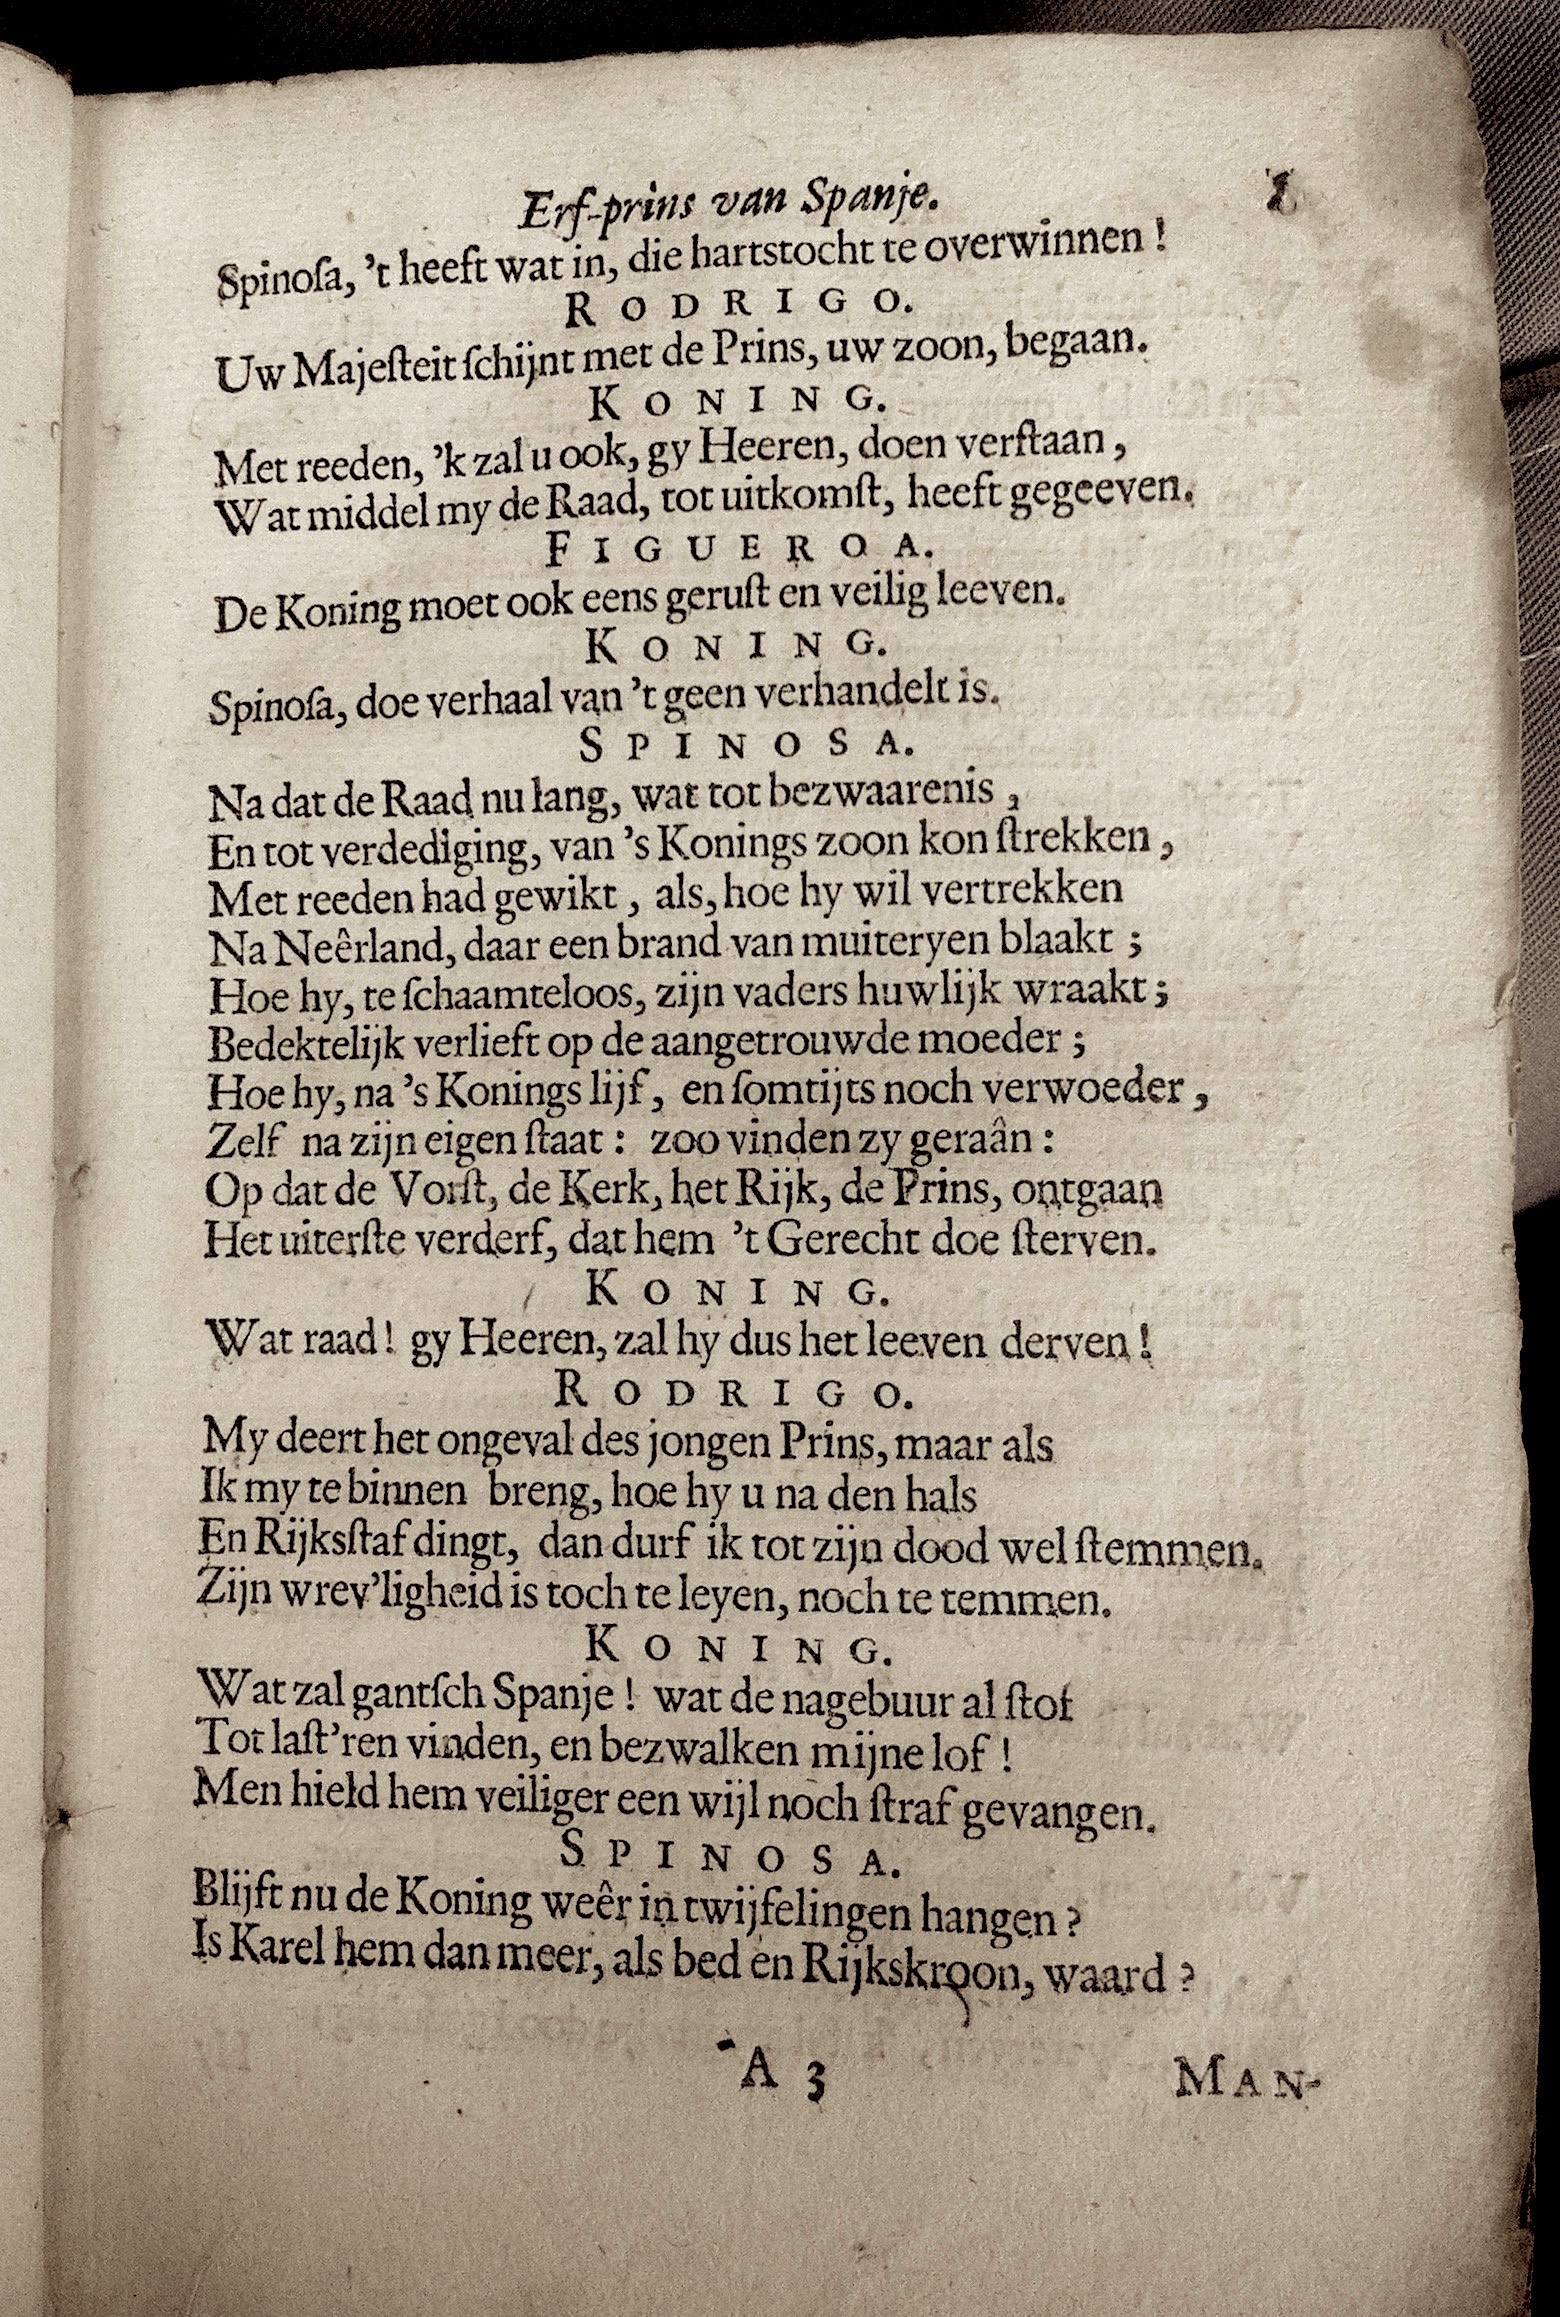 Erf-prins van Spanje.
Spinoſa, 't heeft wat in, die hartstocht te overwinnen!
RODRIGO.
Uw Majeſteit ſchijnt met de Prins, uw zoon, begaan.
KONING.
Met reeden, 'k zal u ook, gy Heeren, doen verſtaan,
Wat middel my de Raad, tot uitkomſt, heeft gegeeven.
FIGUEROA.
De Koning moet ook eens geruſt en veilig leeven.
KONING.
Spinoſa, doe verhaal van 't geen verhandelt is.
SPINOSA.
Na dat de Raad nu lang, wat tot bezwaarenis,
En tot verdediging, van 's Konings zoon kon ſtrekken,
Met reeden had gewikt, als, hoe hy wil vertrekken
Na Neêrland, daar een brand van muiteryen blaakt;
Hoe hy, te ſchaamteloos, zijn vaders huwlijk wraakt;
Bedektelijk verlieft op de aangetrouwde moeder;
Hoe hy, na 's Konings lijf, en ſomtijts noch verwoeder,
Zelf na zijn eigen ſtaat: zoo vinden zy geraân:
Op dat de Vorſt, de Kerk, het Rijk, de Prins, ontgaan
Het uiterſte verderf, dat hem 't Gerecht doe ſterven.
KONING.
Wat raad! gy Heeren, zal hy dus het leeven derven!
RODRIGO.
My deert het ongeval des jongen Prins, maar als
Ik my te binnen breng, hoe hy u na den hals
En Rijksſtaf dingt, dan durf ik tot zijn dood wel ſtemmen.
Zijn wrev'ligheid is toch te leyen, noch te temmen.
KONING.
Wat zal gantſch Spanje! wat de nagebuur al ſtof
Tot laſt'ren vinden, en bezwalken mijne lof!
Men hield hem veiliger een wijl noch ſtraf gevangen.
SPINOSA.
Blijft nu de Koning weêr in twijfelingen hangen?
Is Karel hem dan meer, als bed en Rijkskroon, waard?
A 3
MAN-